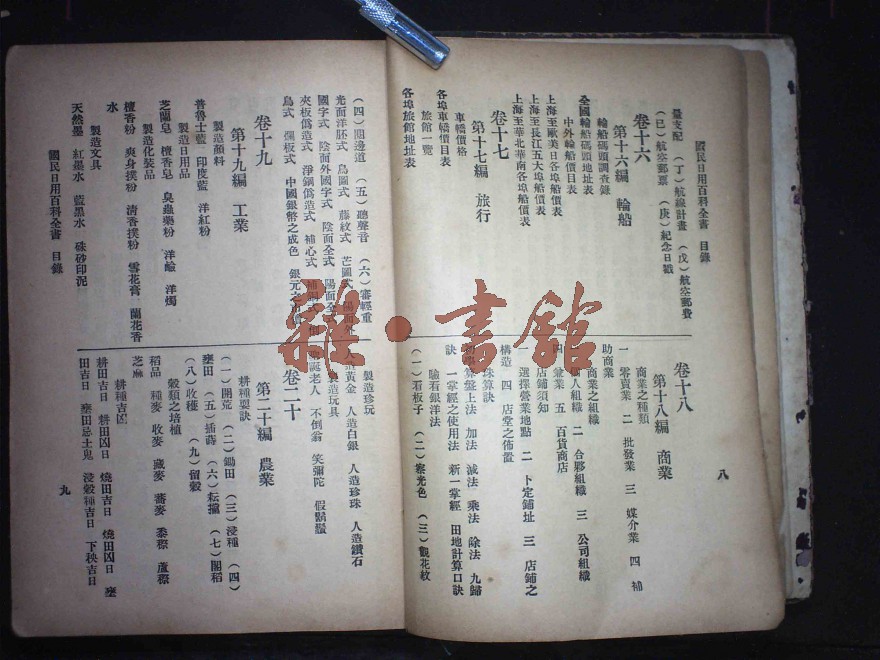 國民日用百科全書 目錄
八
量支配 (丁)航線計畫 (戊)航空郵費
(已)航空郵票 (庚)紀念日戳
卷十六
第十六編 輪船
輪船碼頭調查錄
全國輪船碼頭地址表
中外輪船價目表
上海至歐美日各埠船價表
上海至長江五大埠船價表
上海至華北華南各埠船價表
卷十七
第十七編 旅行
車轎價格
各埠車轎價目表
旅館一覽
各埠旅館地址表
卷十八
第十八編 商業
商業之種類
一 零賣業 二 批發業 三 媒介業 四 補
助商業
商業之組織
個人組織 二 合夥組織 三 公司組織
四 兼業 五 百貨商店
店鋪須知
一 選擇營業地點 二 卜定鋪址 三 店鋪之
構造 四 店堂之佈置
珠算訣
算盤上法 加法 減法 乘法 除法 九歸
訣 一掌經之使用法 新一掌經 田地計算口訣
驗看銀洋法
(一)看板子 (二)察光色 (三)觀花紋
(四)開邊道 (五)聽聲音 (六)審輕重
光面洋胚式 鳥圖式 藤紋式 芒圖式
國字式 陰面外國字式 陰面全式 陽面全
夾板僞造式 淨鋼僞造式 補心式
鳥式 爛板式 中國銀幣之成色 銀元之
卷十九
第十九編 工業
製造顏料
普魯士藍 印度藍 洋紅粉
製造日用品
芝蘭皂 檀香皂 臭蟲藥粉 洋鹼 洋燭
製造化裝品
檀香粉 爽身撲粉 清香撲粉 雪花膏 蘭花香
水
製造文具
天然墨 紅墨水 藍墨水 硃砂印泥
製造珍玩
人造黃金 人造白銀 人造珍珠 人造鑽石
製造玩具
聖誕老人 不倒翁 笑彌陀 假鬍鬚
卷二十
第二十編 農業
耕種要訣
(一)開荒 (二)鋤田 (三)浸種 (四)
壅田 (五)插蒔 (六)耘擋 (七)閣稻
(八)收穫 (九)留穀
穀類之培植
稻品 種麥 收麥 藏麥 蕎麥 黍稷 蘆穄
芝麻
耕種吉凶
耕田吉日 耕田凶日 燒田吉日 燒田凶日 壅
田吉日 壅田忌土鬼 浸穀種吉日 下秧吉日
國民日用百科全書 目錄
九
雜·書館